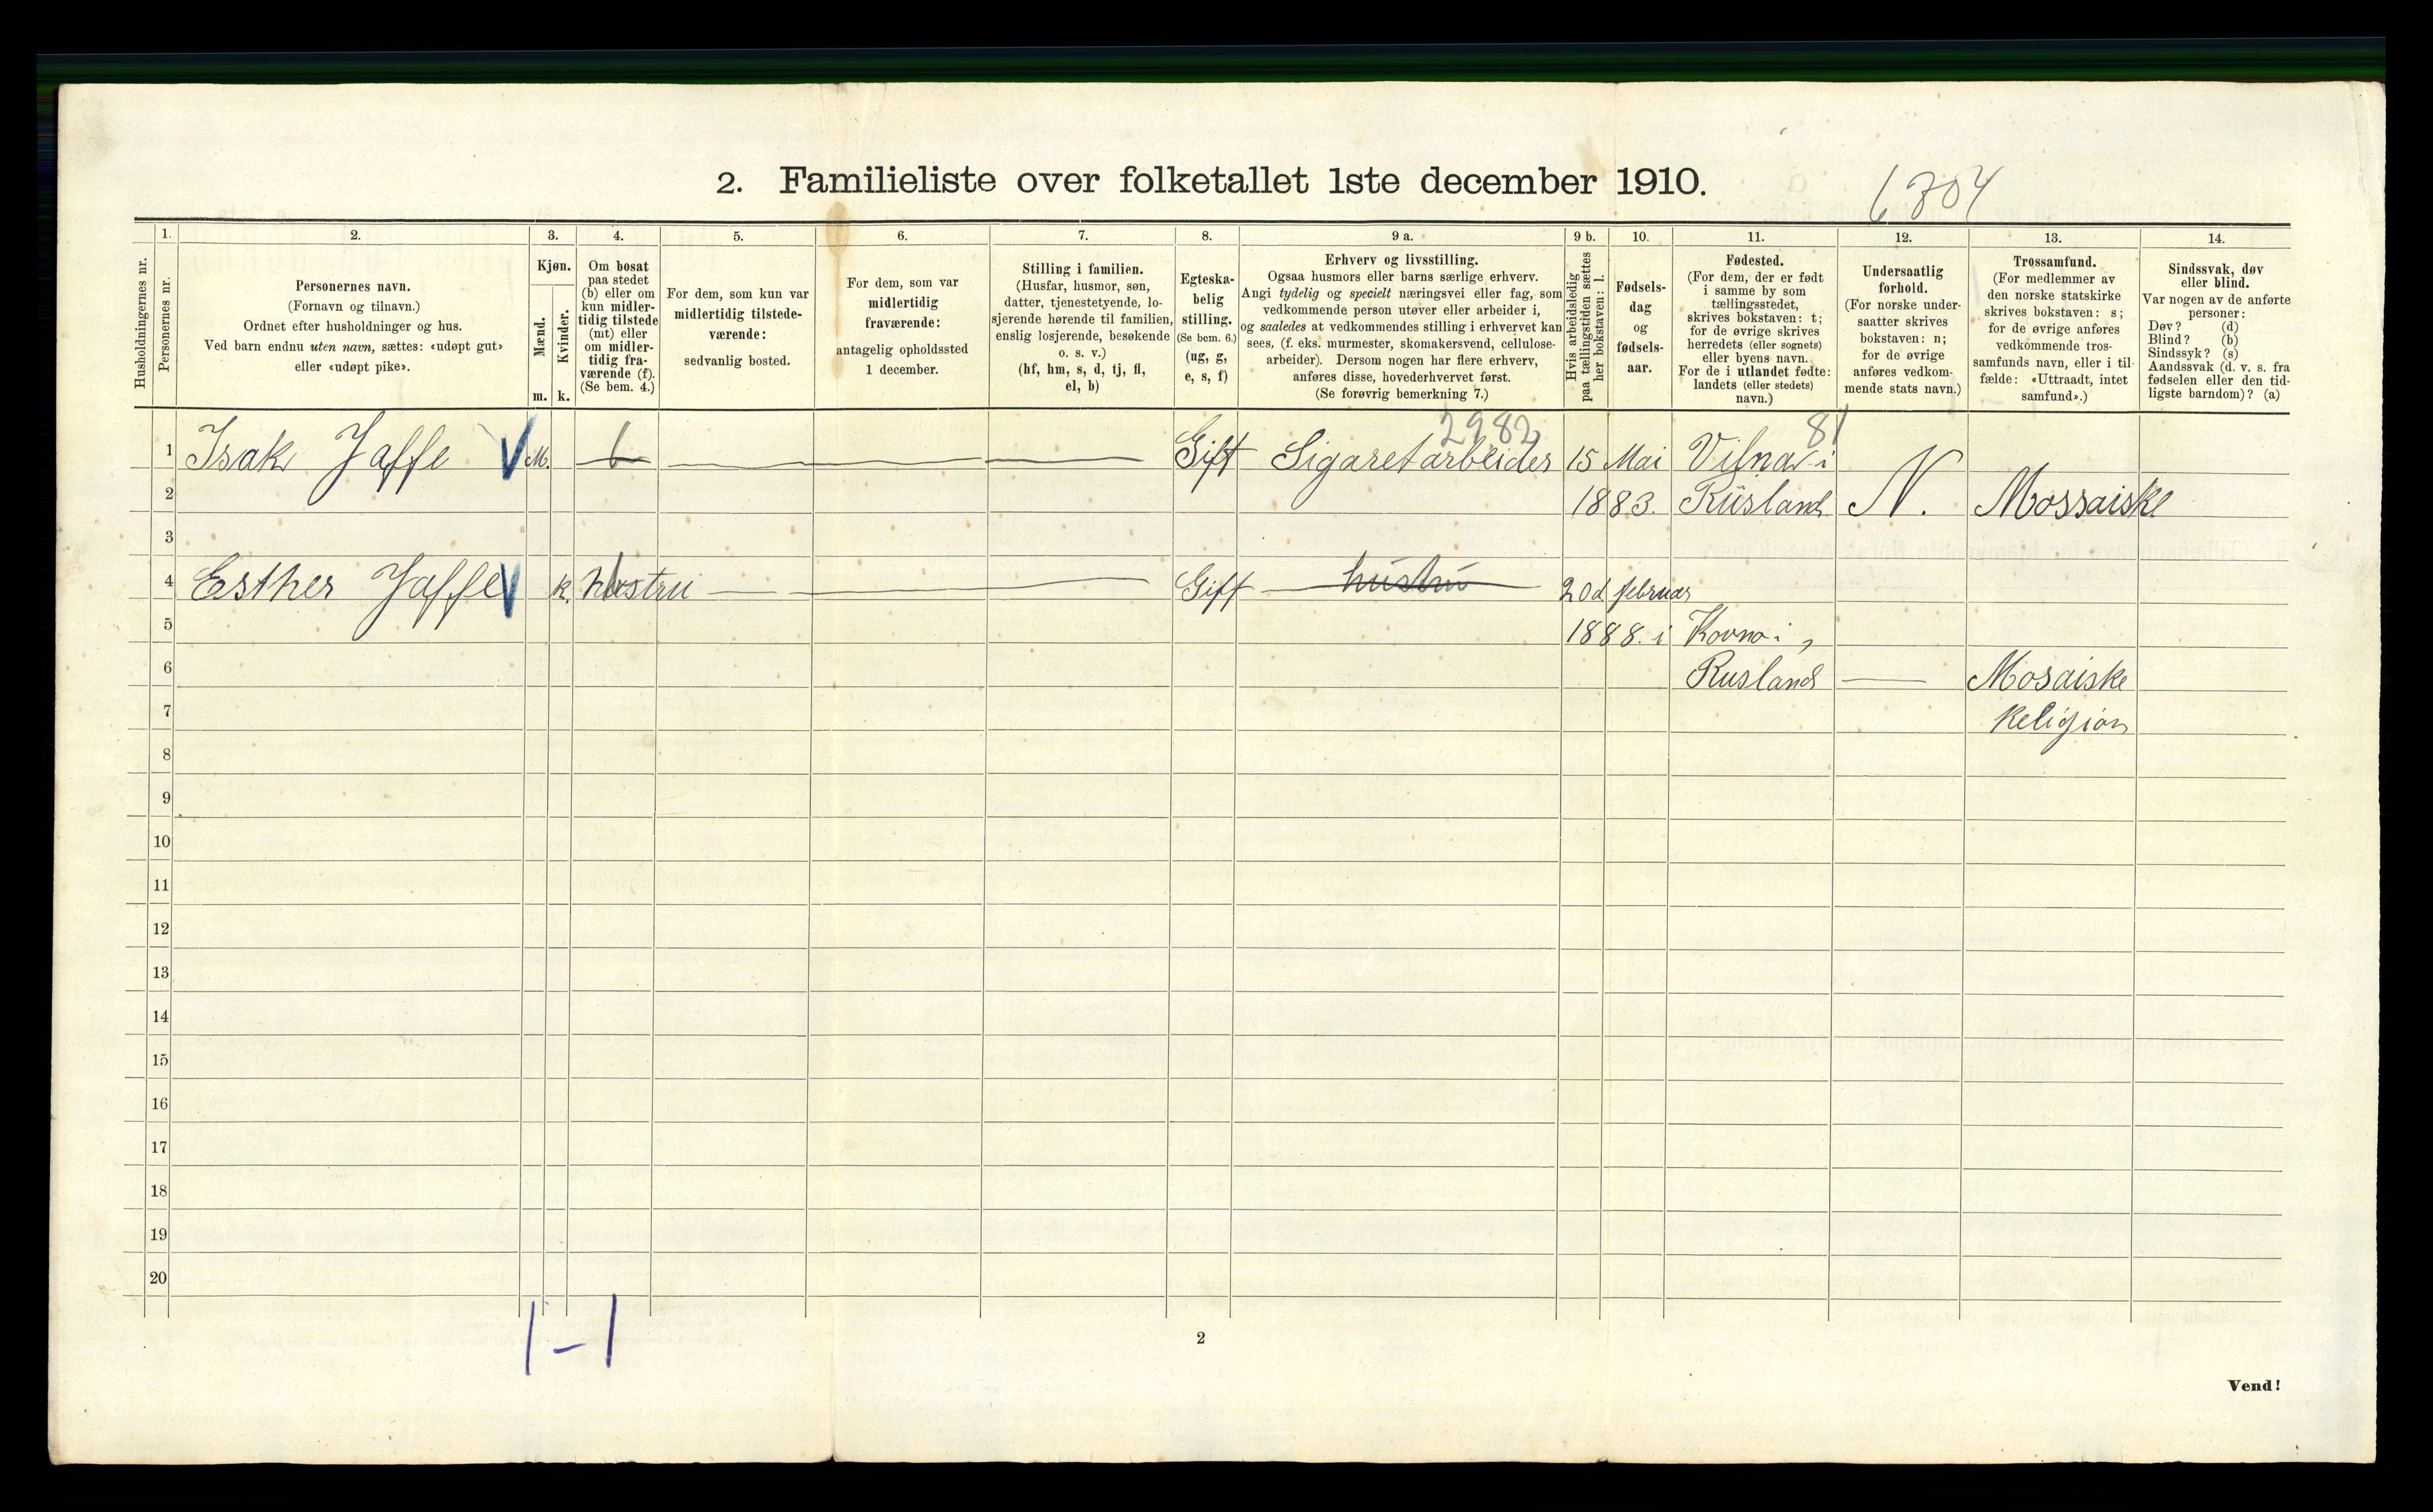 2. Familieliste over folketallet 1ste december 1910.
6704
1. 2. 3. 4. 5. 6. 7. 8. 9 a. 9 b. 10. 11. 12. 13. 14.
Husholdningernes nr.
Personernes nr.
Personernes navn.
(Fornavn og tilnavn.)
Ordnet efter husholdninger og hus.
Ved barn endnu uten navn, sættes: «udøpt gut»
eller «udøpt pike».
Kjøn.
Mænd.
Kvinder.
m. k.
Om bosat
paa stedet
(b) eller om
kun midler-
tidig tilstede
(mt) eller
om midler-
tidig fra-
værende (f).
(Se bem. 4.)
For dem, som kun var
midlertidig tilstede-
værende:
sedvanlig bosted.
For dem, som var
midlertidig
fraværende:
antagelig opholdssted
1 december.
Stilling i familien.
(Husfar, husmor, søn,
datter, tjenestetyende, lo-
sjerende hørende til familien,
enslig losjerende, besøkende
o. s. v.)
(hf, hm, s, d, tj, fl,
el, b)
Egteska-
belig
stilling.
(Se bem. 6.)
(ug, g,
e, s, f)
Erhverv og livsstilling.
Ogsaa husmors eller barns særlige erhverv.
Angi tydelig og specielt næringsvei eller fag, som
vedkommende person utøver eller arbeider i,
og saaledes at vedkommendes stilling i erhvervet kan
sees, (f. eks. murmester, skomakersvend, cellulose-
arbeider). Dersom nogen har flere erhverv,
anføres disse, hovederhvervet først.
(Se forøvrig bemerkning 7.)
Hvis arbeidsledig
paa tællingstiden sættes
her bokstaven: l.
Fødsels-
dag
og
fødsels-
aar.
Fødested.
(For dem, der er født
i samme by som
tællingsstedet,
skrives bokstaven: t;
for de øvrige skrives
herredets (eller sognets)
eller byens navn.
For de i utlandet fødte:
landets (eller stedets)
navn.)
Undersaatlig
forhold.
(For norske under-
saatter skrives
bokstaven: n;
for de øvrige
anføres vedkom-
mende stats navn.)
Trossamfund.
(For medlemmer av
den norske statskirke
skrives bokstaven: s;
for de øvrige anføres
vedkommende tros-
samfunds navn, eller i til-
fælde: «Uttraadt, intet
samfund».)
Sindssvak, døv
eller blind.
Var nogen av de anførte
personer:
Døv? (d)
Blind? (b)
Sindssyk? (s)
Aandssvak (d. v. s. fra
fødselen eller den tid-
ligste barndom)? (a)
2982 81
1 Isak Jaffe V M. b Gift Sigaretarbeider 15 Mai Vilna i
2 1883. Rüsland N. Mossaiske
3
4 Esther Jaffe V k. hustru b Gift hustru 20d februar
5 1888. i Kovno i,
6 Rusland — Mosaiske
7 Religion
8
9
10
11
12
13
14
15
16
17
18
19
20
1 - 1
2
Vend!